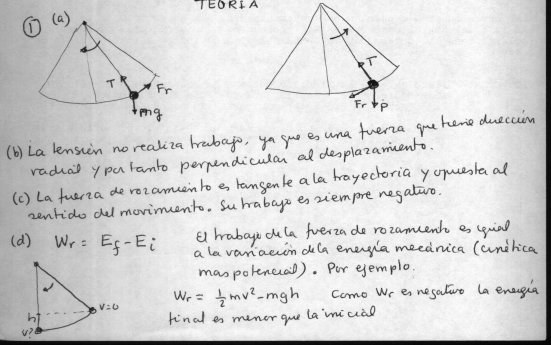 TEORIA
① (a)
T Fr mg
T Fr P
(b) La tensión no realiza trabajo, ya que es una fuerza que tiene dirección
radial y por tanto perpendicular al desplazamiento.
(c) La fuerza de rozamiento es tangente a la trayectoria y opuesta al
sentido del movimiento. Su trabajo es siempre negativo.
(d) Wr = Ef - Ei El trabajo de la fuerza de rozamiento es igual
a la variación de la energía mecánica (cinética
mas potencial). Por ejemplo.
h v=0 v?
Wr = ½ mv² - mgh Como Wr es negativo la energía
final es menor que la inicial